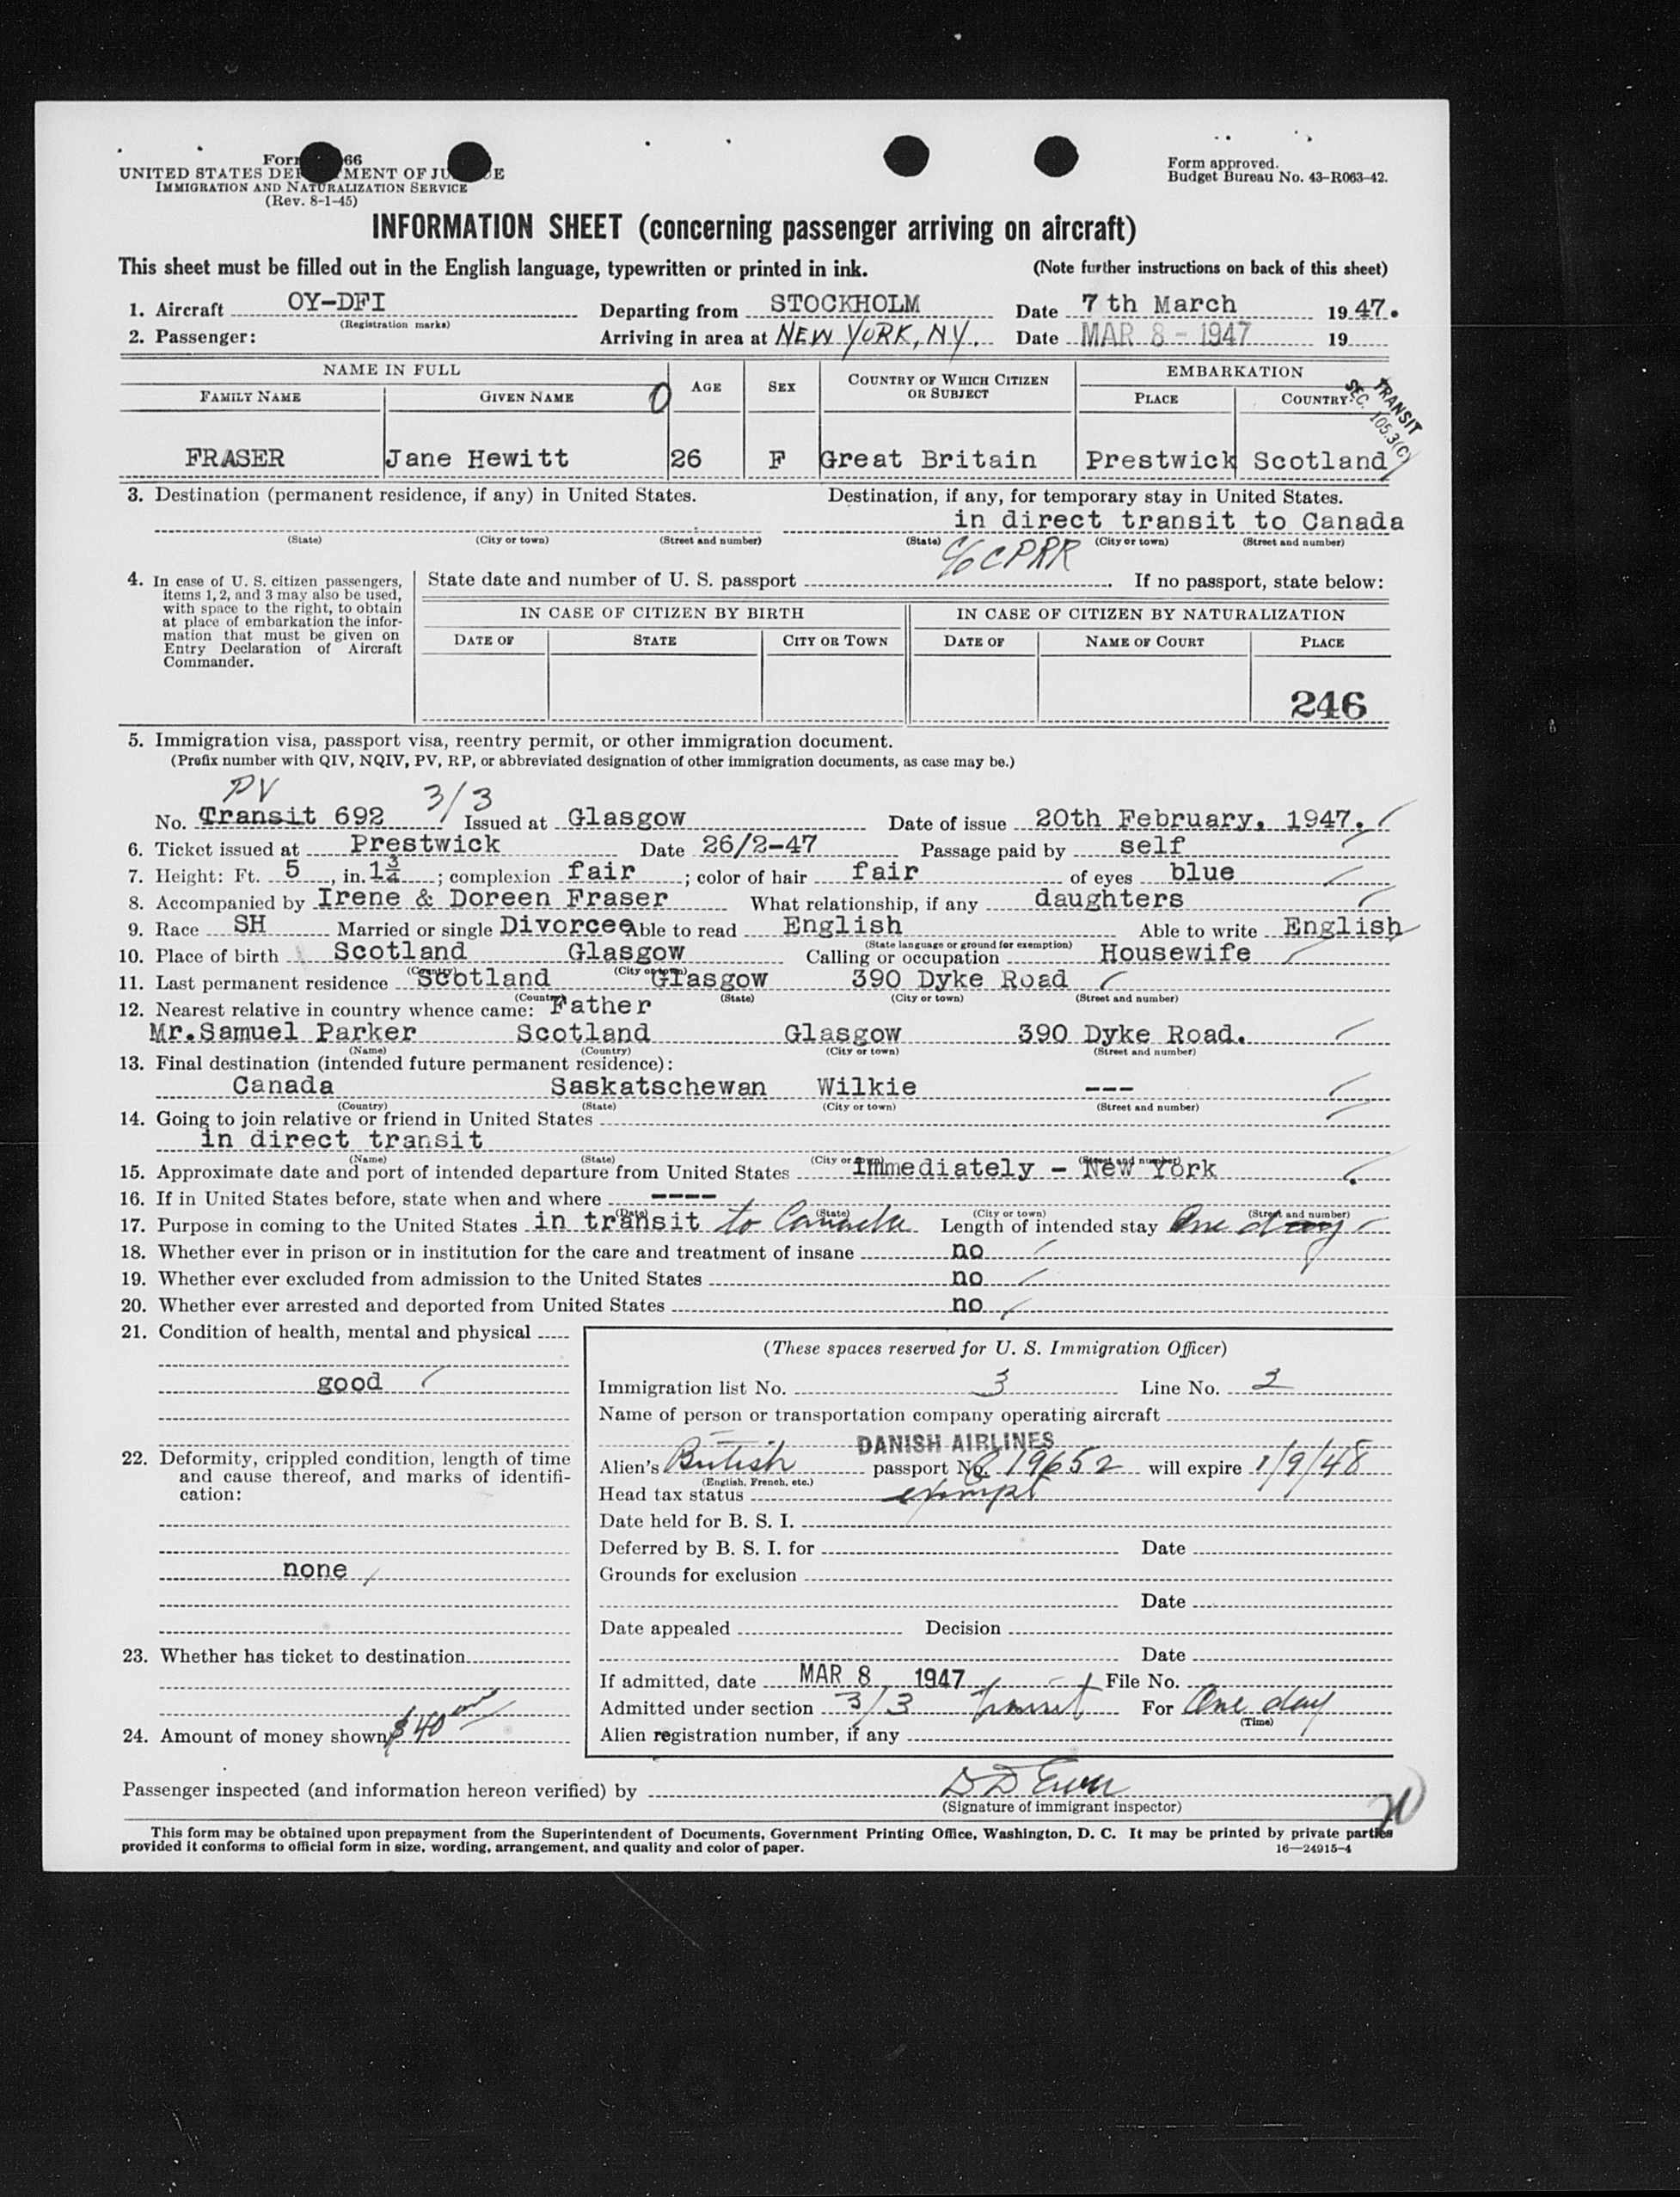 Form 66
UNITED STATES DEPARTMENT OF JUSTICE
IMMIGRATION AND NATURALIZATION SERVICE
(Rev. 8-1-45)
Form approved.
Budget Bureau No. 43-R063-42.
INFORMATION SHEET (concerning passenger arriving on aircraft)
This sheet must be filled out in the English language, typewritten or printed in ink. (Note further instructions on back of this sheet)
1. Aircraft OY-DFI Departing from STOCKHOLM Date 7 th March 1947.
(Registration marks)
2. Passenger: Arriving in area at NEW YORK, NY. Date MAR 8 - 1947 19
NAME IN FULL AGE SEX COUNTRY OF WHICH CITIZEN OR SUBJECT EMBARKATION
FAMILY NAME GIVEN NAME 0 PLACE COUNTRY
TRANSIT
SEC. 105.3(C)
FRASER Jane Hewitt 26 F Great Britain Prestwick Scotland
3. Destination (permanent residence, if any) in United States. Destination, if any, for temporary stay in United States.
in direct transit to Canada
(State) (City or town) (Street and number) (State) (City or town) (Street and number)
c/o CPRR
4. In case of U. S. citizen passengers, items 1, 2, and 3 may also be used, with space to the right, to obtain at place of embarkation the information that must be given on Entry Declaration of Aircraft Commander.
State date and number of U. S. passport If no passport, state below:
IN CASE OF CITIZEN BY BIRTH IN CASE OF CITIZEN BY NATURALIZATION
DATE OF STATE CITY OR TOWN DATE OF NAME OF COURT PLACE
246
5. Immigration visa, passport visa, reentry permit, or other immigration document.
(Prefix number with QIV, NQIV, PV, RP, or abbreviated designation of other immigration documents, as case may be.)
PV 3/3
No. Transit 692 Issued at Glasgow Date of issue 20th February, 1947.
6. Ticket issued at Prestwick Date 26/2-47 Passage paid by self
7. Height: Ft. 5, in. 1¾; complexion fair; color of hair fair of eyes blue
8. Accompanied by Irene & Doreen Fraser What relationship, if any daughters
9. Race SH Married or single Divorcee Able to read English Able to write English
(State language or ground for exemption)
10. Place of birth Scotland Glasgow Calling or occupation Housewife
(Country) (City or town)
11. Last permanent residence Scotland Glasgow 390 Dyke Road
(Country) (State) (City or town) (Street and number)
12. Nearest relative in country whence came: Father
Mr.Samuel Parker Scotland Glasgow 390 Dyke Road.
(Name) (Country) (City or town) (Street and number)
13. Final destination (intended future permanent residence):
Canada Saskatschewan Wilkie ---
(Country) (State) (City or town) (Street and number)
14. Going to join relative or friend in United States
in direct transit
(Name) (State) (City or town) (Street and number)
15. Approximate date and port of intended departure from United States Immediately - New York
16. If in United States before, state when and where ----
(Date) (State) (City or town) (Street and number)
17. Purpose in coming to the United States in transit to Canada Length of intended stay One day
18. Whether ever in prison or in institution for the care and treatment of insane no
19. Whether ever excluded from admission to the United States no
20. Whether ever arrested and deported from United States no
21. Condition of health, mental and physical
good
22. Deformity, crippled condition, length of time and cause thereof, and marks of identification:
none
23. Whether has ticket to destination
24. Amount of money shown $40
(These spaces reserved for U. S. Immigration Officer)
Immigration list No. 3 Line No. 2
Name of person or transportation company operating aircraft
DANISH AIRLINES
Alien's British passport No. 219652 will expire 1/9/48
(English, French, etc.)
Head tax status exempt
Date held for B. S. I.
Deferred by B. S. I. for Date
Grounds for exclusion
Date
Date appealed Decision
Date
If admitted, date MAR 8 1947 File No.
Admitted under section 3/3 transit For One day
(Time)
Alien registration number, if any
Passenger inspected (and information hereon verified) by
(Signature of immigrant inspector)
This form may be obtained upon prepayment from the Superintendent of Documents, Government Printing Office, Washington, D. C. It may be printed by private parties
provided it conforms to official form in size, wording, arrangement, and quality and color of paper. 16—24915-4